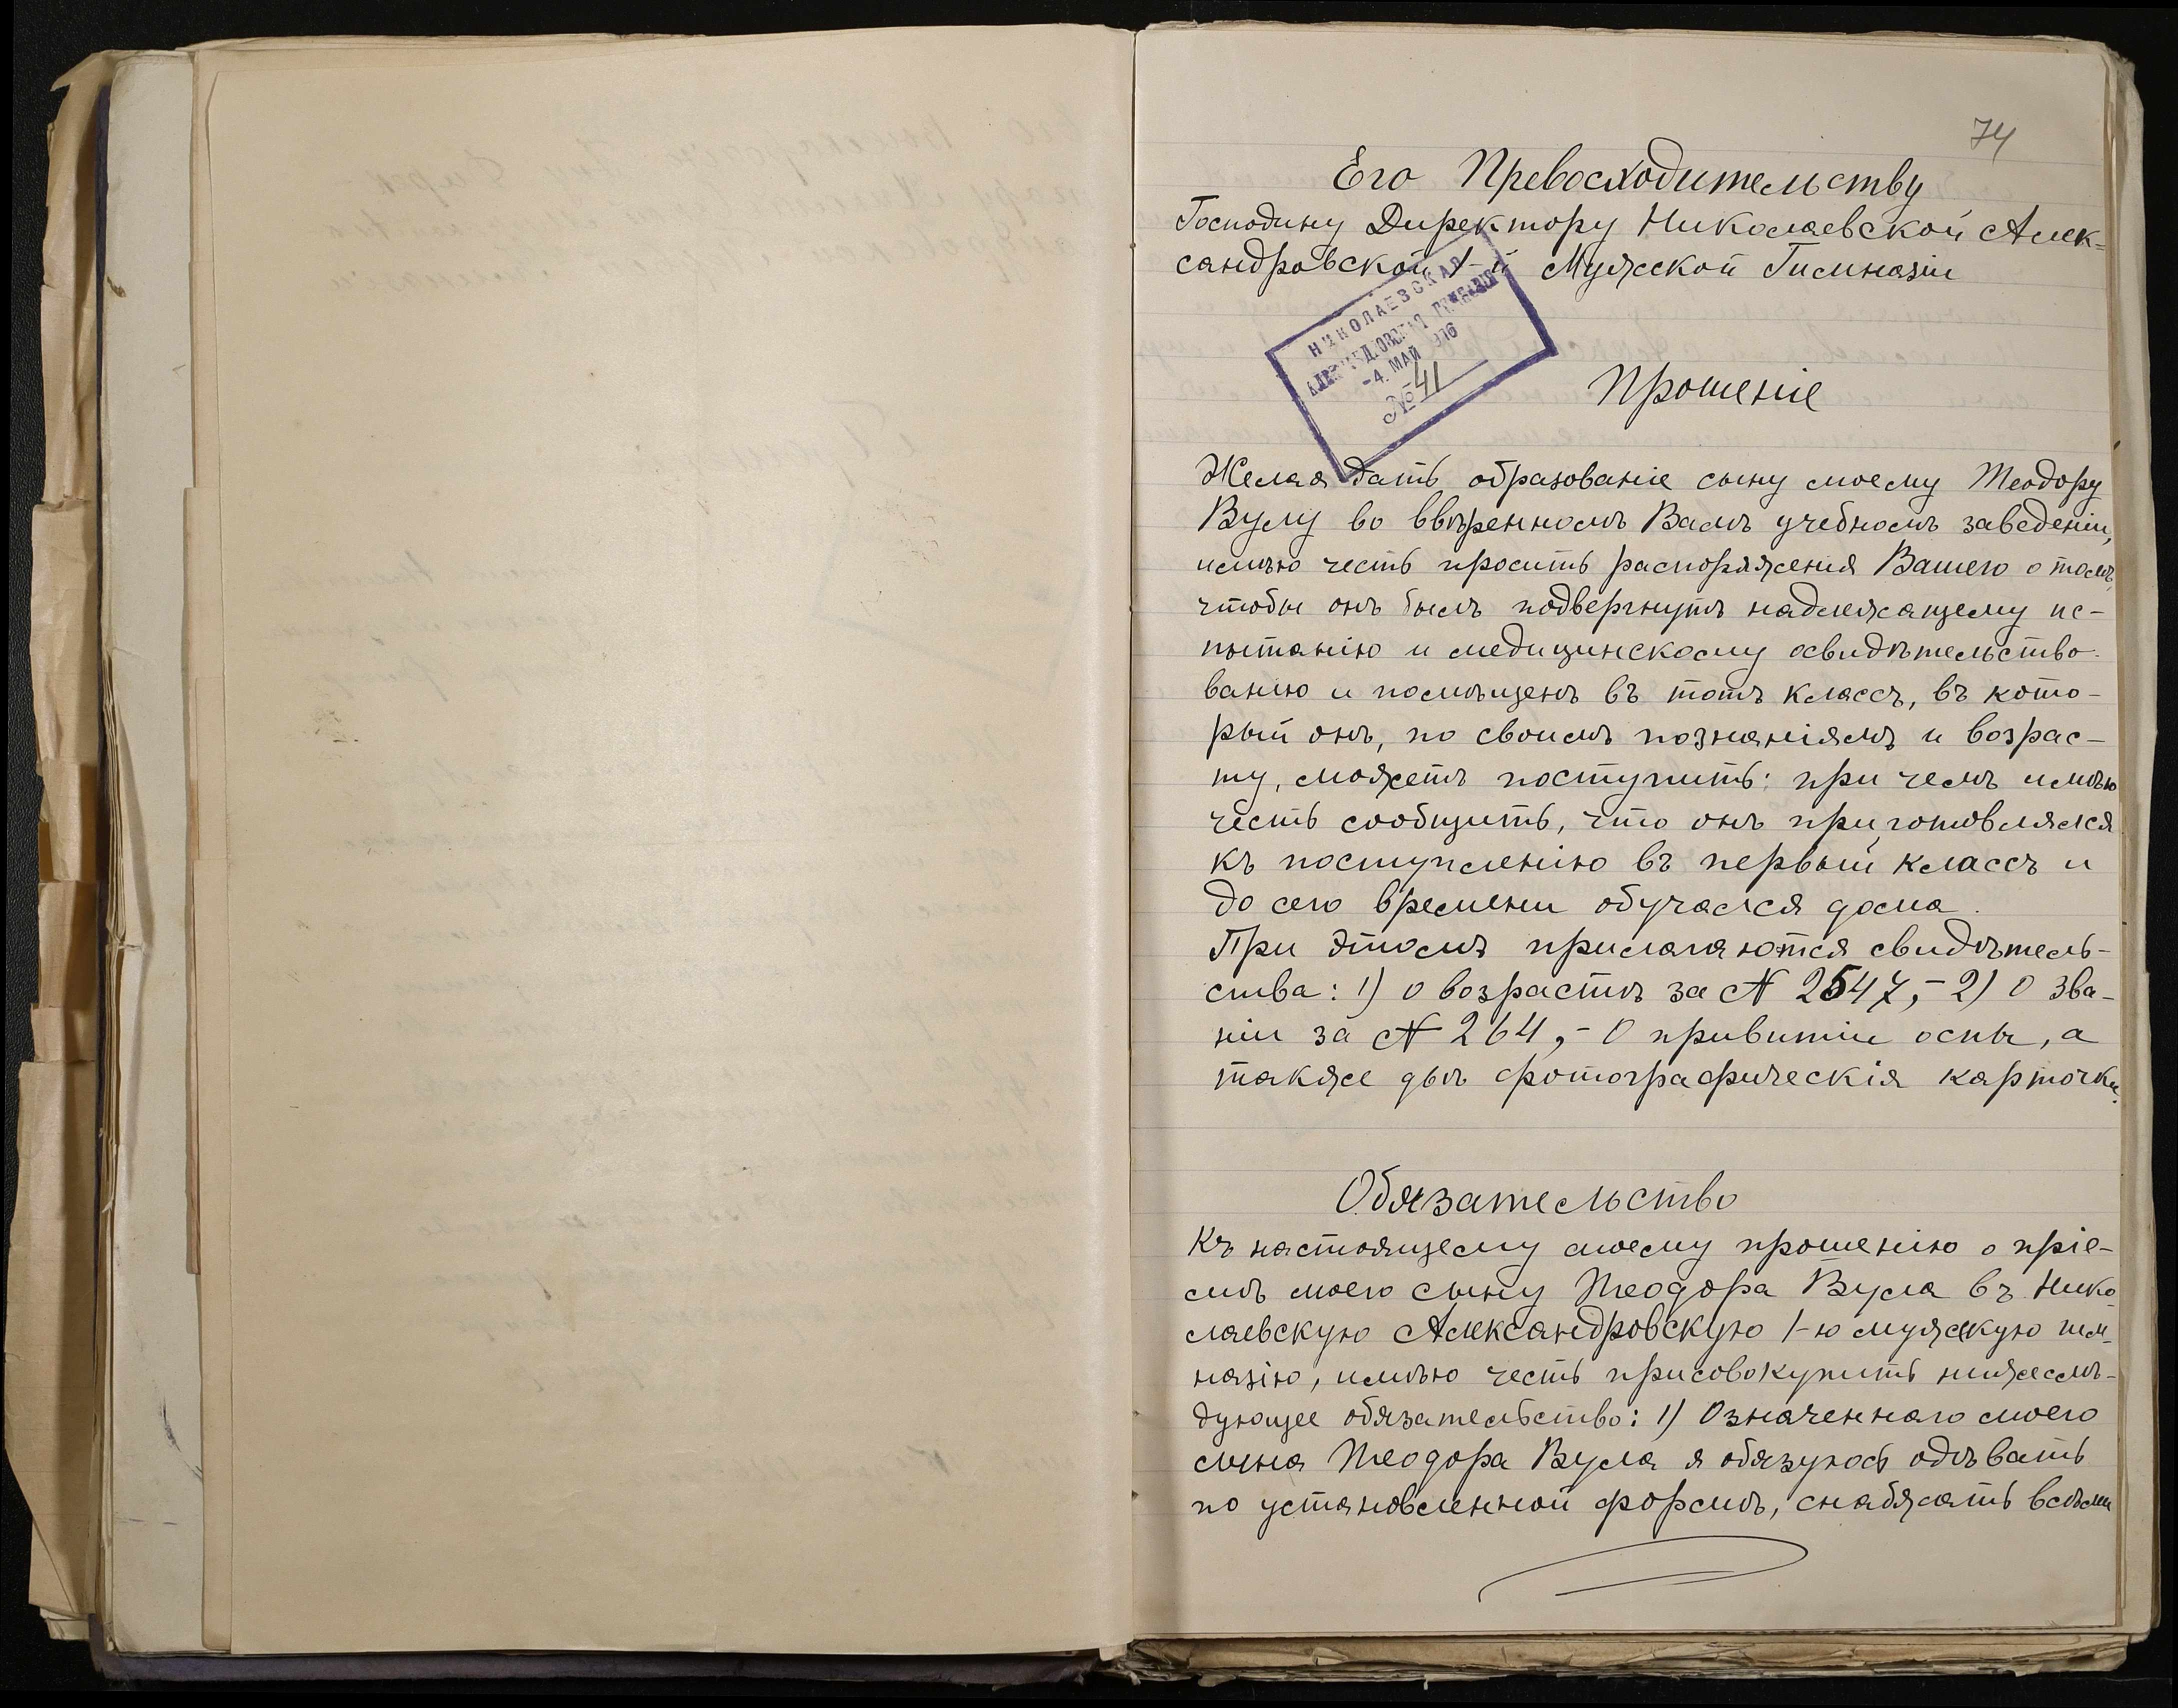 74
Его Превосходительству
Господину Директору Николаевской Алек-
сандровской 1-й Мужской Гимназіи
НИКОЛАЕВСКАЯ
АЛЕКСАНДРОВСКАЯ ГИМНАЗІЯ
-4. МАЙ 916
№ 41
Прошеніе
Желая дать образованіе сыну моему Теодору
Вулу во ввѣренномъ Вамъ учебномъ заведеніи,
имѣю честь просить распоряженія Вашего о томъ,
чтобы онъ былъ подвергнутъ надлежащему ис-
пытанію и медицинскому освидѣтельство-
ванію и помѣщенъ въ тотъ классъ, въ кото-
рый онъ, по своимъ познаніямъ и возрас-
ту, можетъ поступить: при чемъ имѣю
честь сообщить, что онъ приготовлялся
къ поступленію въ первый классъ и
до сего времени обучался дома.
При этомъ прилагаются свидѣтель-
ства: 1) о возрастѣ за № 2547,- 2) О зва-
ніи за № 264,- О привитіи оспы, а
также двѣ фотографическія карточки.
Обязательство
Къ настоящему моему прошенію о пріе-
мѣ моего сыну Теодора Вула въ Нико-
лаевскую Александровскую 1-ю мужскую гим-
назію, имѣю честь присовокупить нижеслѣ-
дующее обязательство: 1) Означеннаго моего
сына Теодора Вула я обязуюсь одѣвать
по установленной формѣ, снабжать всѣми